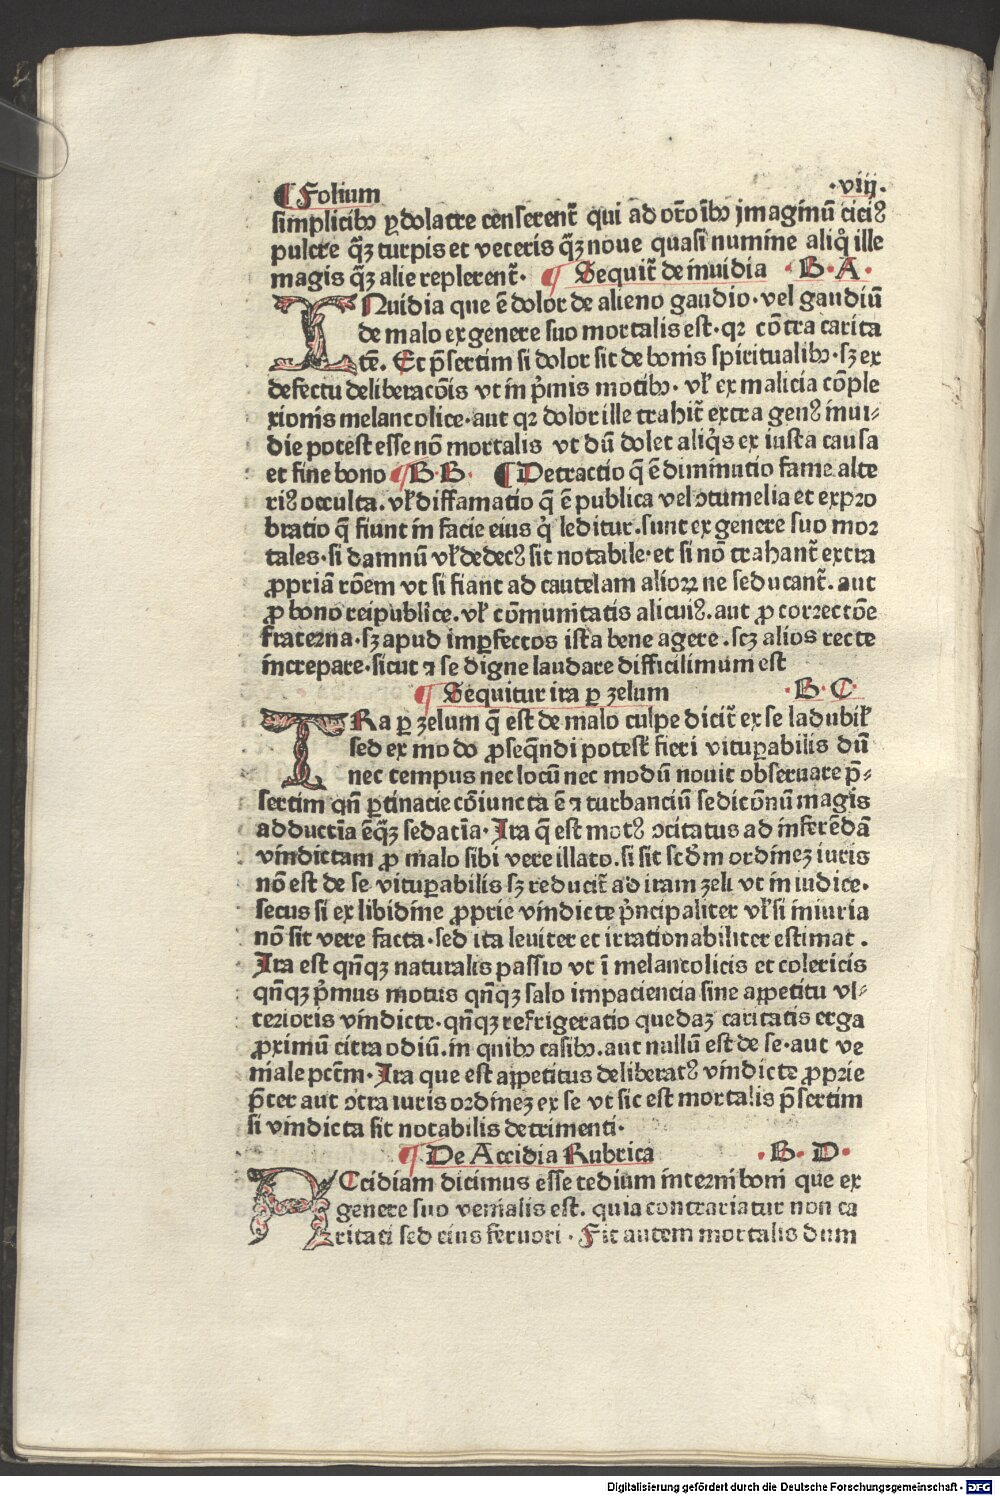 ¶ Folium ·viij·
simplicibꝫ ydolatre censerent᷑ qui ad ot̄oībꝫ jmaginū cici᷒
pulcre q̄ꝫ turpis et veteris q̄ꝫ noue quasi numine aliq̊ ille
magis q̄ꝫ alie replerent᷑· ¶ Sequit᷑ de inuidia ·B·A·
INuidia que ē dolor de alieno gaudio·vel gaudiū
de malo ex genere suo mortalis est·qꝛ cōtra carita
tē. Et p̄sertim si dolor sit de bonis spiritualibꝫ·sꝫ ex
defectu deliberacōis vt in p̄mis motibꝫ· vl̕ ex malicia cōple
xionis melancolice·aut qꝛ dolor ille trahit᷑ extra gen᷒ inui-
die potest esse nō mortalis vt dū dolet aliq̄s ex iusta causa
et fine bono ¶ B·B· ¶ Detractio q̄ ē diminutio fame alte
ri᷒ occulta. vl̕ diffamatio q̄ ē publica vel ↄtumelia et expꝛo
bratio q̄ fiunt in facie eius q̇ leditur.sunt ex genere suo moꝛ
tales·si damnū vl̕ dedec᷒ sit notabile·et si nō trahant᷑ extra
ꝓpriā rōem vt si fiant ad cautelam alioꝝ ne seducant᷑. aut
ꝓ bono reipublice. vl̕ cōmunitatis alicui᷒. aut ꝓ correctōe
fraterna·sꝫ apud imꝑfectos ista bene agere.scꝫ alios recte
increpare·sicut ⁊ se digne laudare difficilimum est
¶ Sequitur ira ꝑ zelum ·B·C·
IRa ꝑ zelum q̄ est de malo culpe dicit᷑ ex se laudubil̕
sed ex modo ꝓseq̄ndi potest fieri vituꝑabilis dū
nec tempus nec locū nec modū nouit obseruare p̄-
sertim qn̄ ꝑtinacie cōiuncta ē ⁊ turbanciū sedicōnū magis
adductīa ēq̄ꝫ sedatīa· Ira q̄ est mot᷒ ↄcitatus ad inferēdā
vindictam ꝓ malo sibi vere illato. si sit scd̄m ordineꝫ iuris
nō est de se vituꝑabilis sꝫ reducit᷑ ad iram zeli vt in iudice·
secus si ex libidine ꝓprie vindicte p̄ncipaliter vl̕ si iniuria
nō sit vere facta·sed ita leuiter et irrationabiliter estimat .
Ira est qn̄qꝫ naturalis passio vt ī melancolicis et colericis
qn̄qꝫ p̄mus motus qn̄qꝫ salo impaciencia sine appetitu vl-
terioris vindicte·qn̄qꝫ refrigeratio quedaꝫ caritatis erga
ꝓximū citra odiū.in quibꝫ casibꝫ.aut nullū est de se·aut ve
niale pctm̄· Ira que est appetitus deliberat᷒ vindicte ꝓprie
p̄ter aut ↄtra iuris oꝛdineꝫ ex se vt sic est mortalis p̄sertim
si vindicta sit notabilis detrimenti·
¶ De Accidia Rubrica ·B·D·
ACcidiam dicimus esse tedium interni boni que ex
genere suo venialis est. quia contrariatur non ca
ritati sed eius feruori · Fit autem mortalis dum
Digitalisierung gefördert durch die Deutsche Forschungsgemeinschaft - DFG